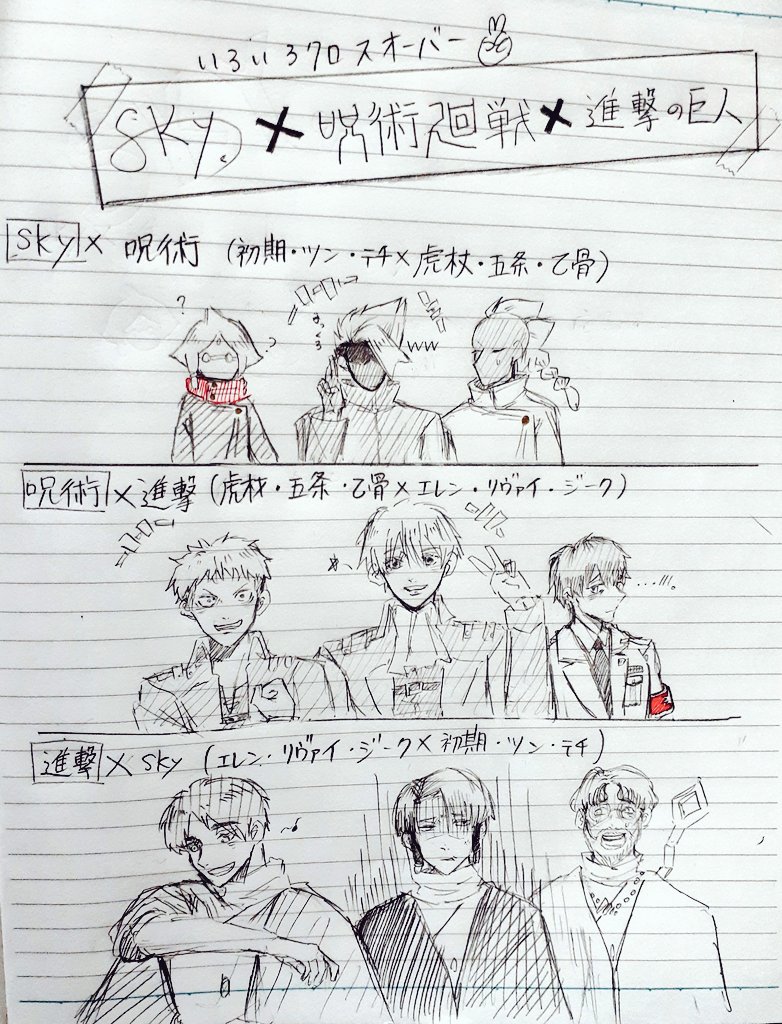 いろいろクロスオーバー
sky × 呪術廻戦 × 進撃の巨人
sky × 呪術 (初期・ツン・テチ×虎杖・五条・乙骨)
? ?
ww
呪術 × 進撃 (虎杖・五条・乙骨×エレン・リヴァイ・ジーク)
進撃 × sky (エレン・リヴァイ・ジーク×初期・ツン・テチ)